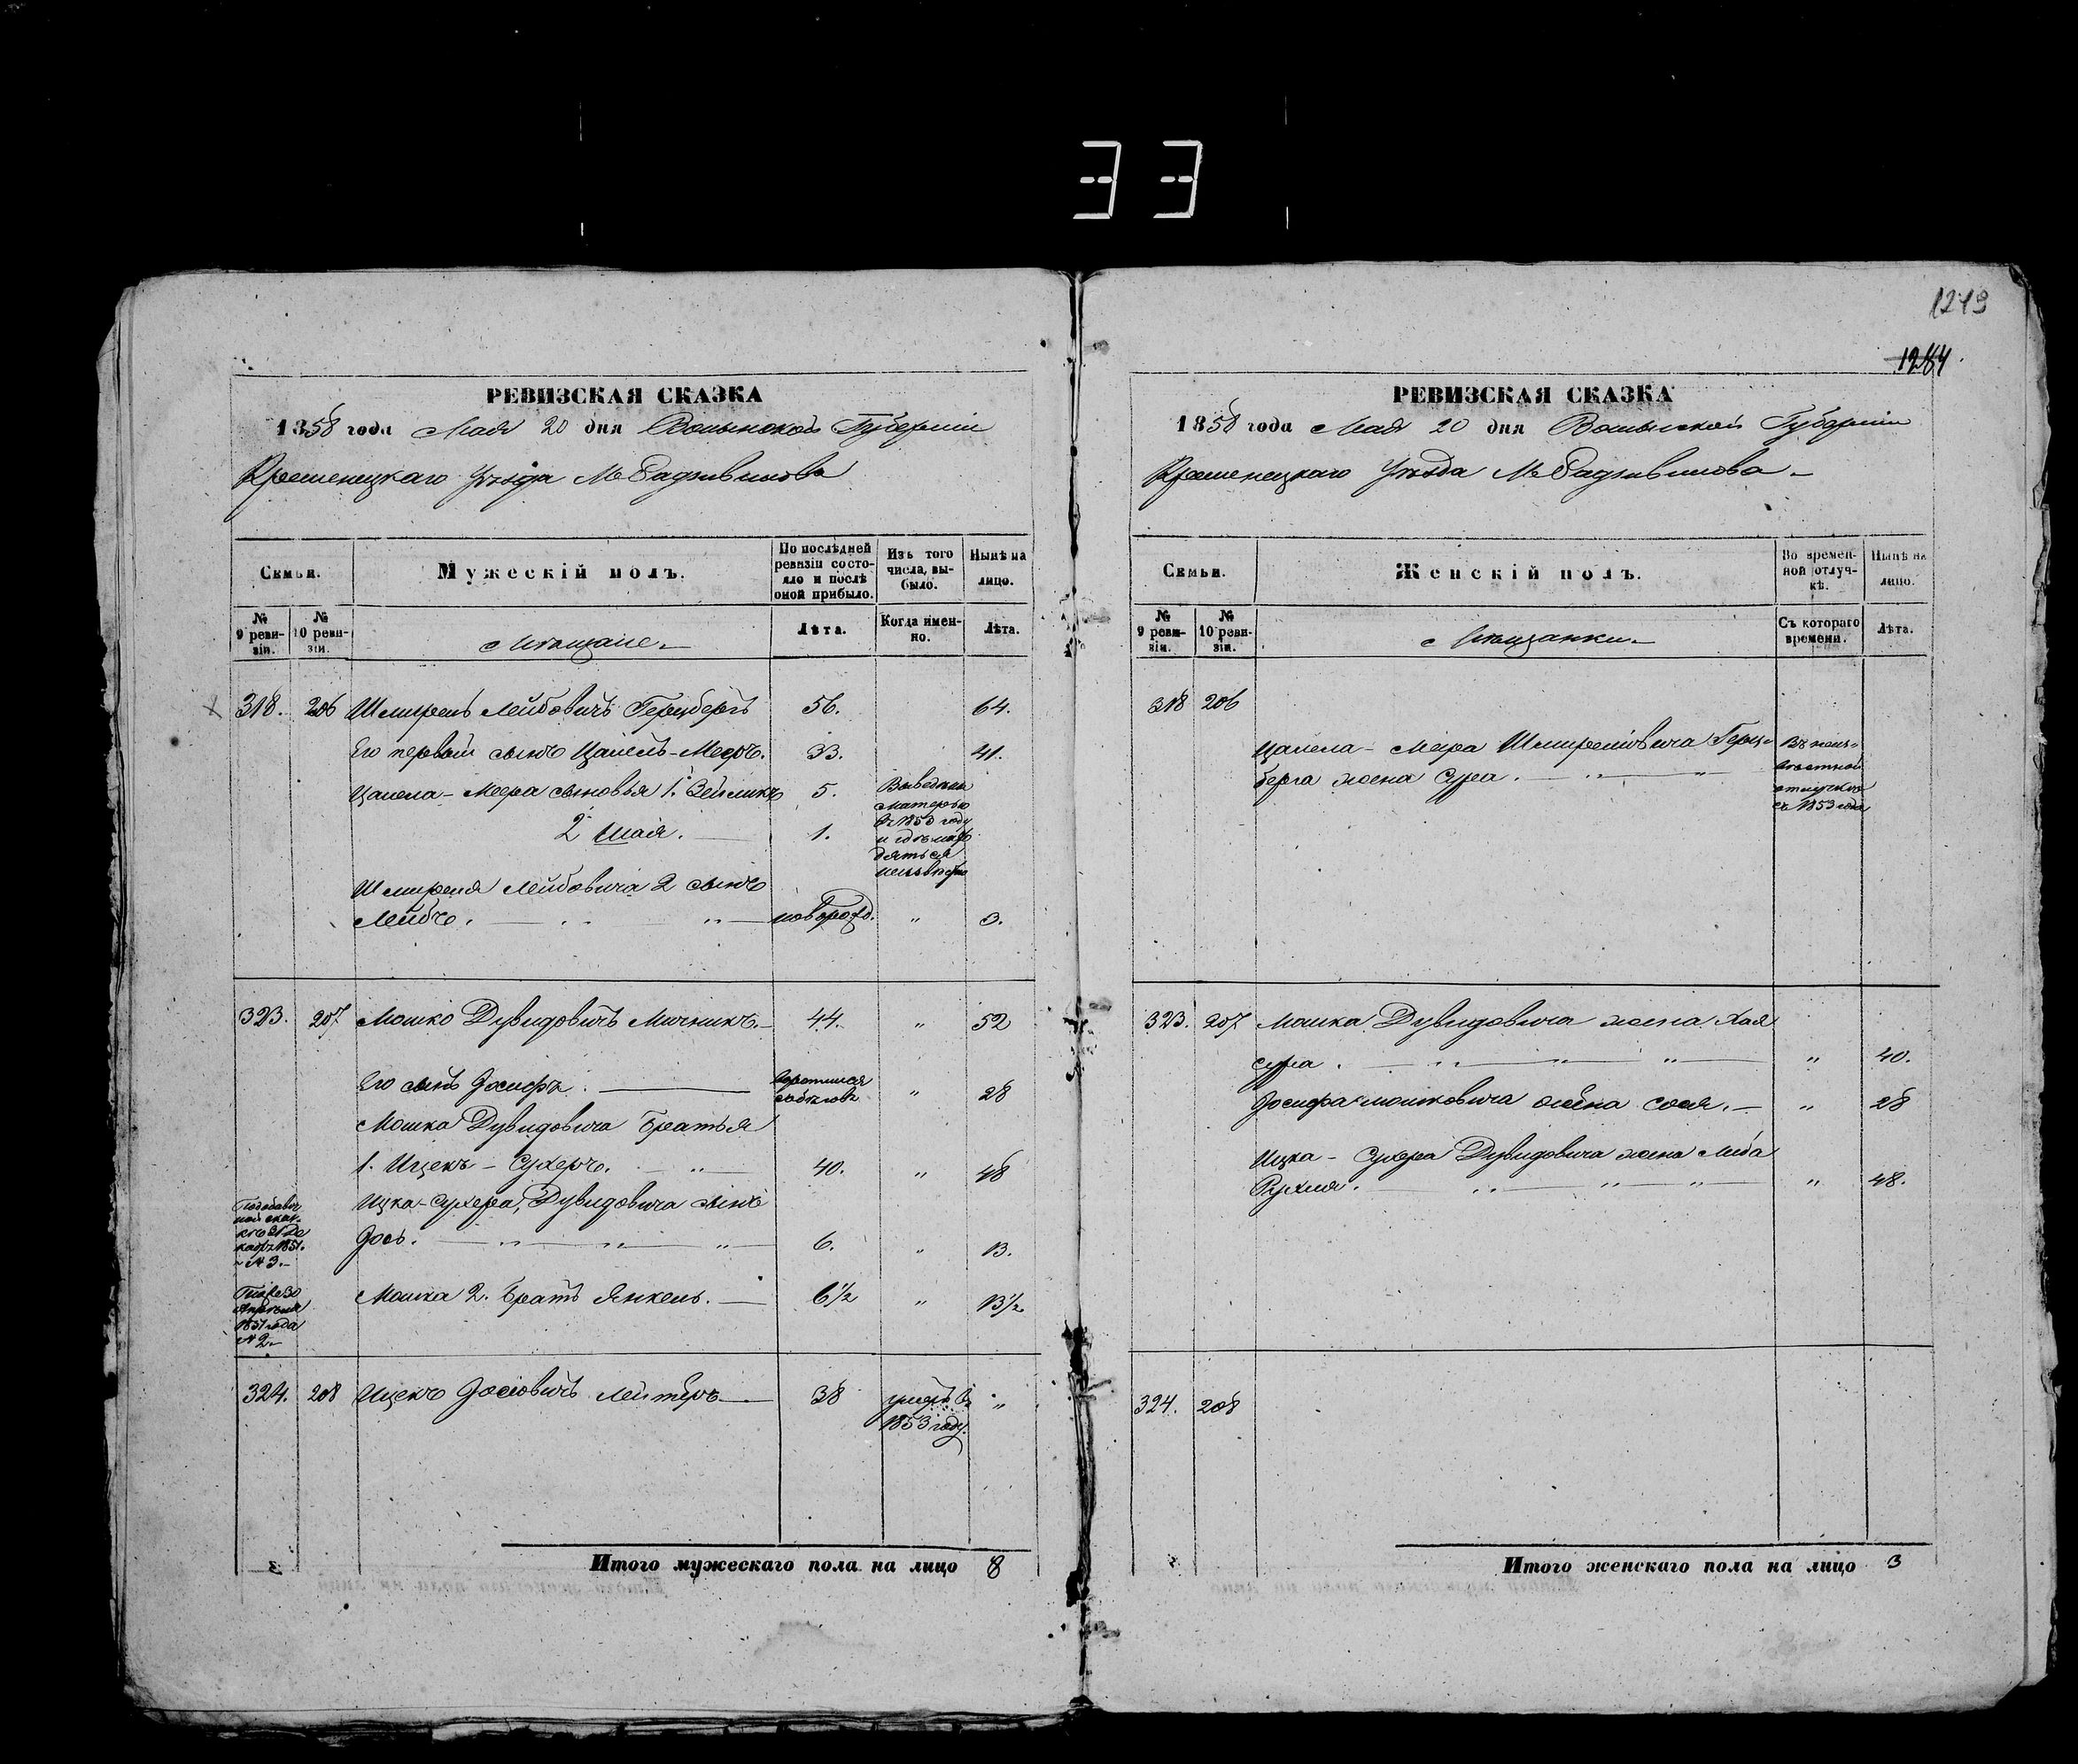 33
1279
1264.
РЕВИЗСКАЯ СКАЗКА
1858 года Мая 20 дня Волынской Губерніи
Кременецкаго Уѣзда М Радзивилова
Семьи.
Мужескій полъ.
По послѣдней ревизіи состояло и послѣ оной прибыло.
Изъ того числа, выбыло.
Нынѣ на лицо.
№ 9 ревизіи.
№ 10 ревизіи.
Мѣщане.
Лѣта.
Когда именно.
Лѣта.
318. 206 Шмирель Лейбовичъ Герцбергъ 56. 64.
Его первый сынъ Цалель-Мееръ. 33. 41.
Цалела-Меера сыновья 1. Зейликъ 5. Выведены
матерью
въ 1853 году
и гдѣ нахо
дяться
неизвѣстно
2 Шая. 1.
Шмиреля Лейбовича 2 сынъ
Лейбъ. новорожд. " 3.
323. 207 Мошко Дувидовичъ Мичникъ. 44. " 52
Его сынъ Іосифъ. воротился
съ бѣговъ " 28
Мошка Дувидовича Братья
1. Ицекъ-Сухеръ. 40. " 48
Ицка-Сухера, Дувидовича сынъ
Іось. 6. " 13.
1851.
№ 3.
Мошка 2. братъ Янкель. 6½ " 13½
30
Апрѣля
1851 года
№ 2
324. 208 Ицекъ Іосіовичъ Лейтеръ 38 умеръ въ
1853 году. "
Итого мужескаго пола на лицо 8
РЕВИЗСКАЯ СКАЗКА
1858 года Мая 20 дня Волынской Губерніи
Кременецкаго Уѣзда М Радзивилова
Семьи.
Женскій полъ.
Во временной отлучкѣ.
Нынѣ на лицо.
№ 9 ревизіи.
№ 10 ревизіи.
Мѣщанки.
Съ котораго времени.
Лѣта.
318 206
Цалела-Меера Шмирелiовича Герц-
берга жена Сура. Въ неиз-
вѣстной
отлучкѣ
съ 1853 года
323. 207 Мошка Дувидовича жена Хая
Сура. " 40.
Іосифа Мошковича жена Сося. " 28
Ицка-Сухера Дувидовича жена Либа
Рухля. " 48.
324. 208
Итого женскаго пола на лицо 3